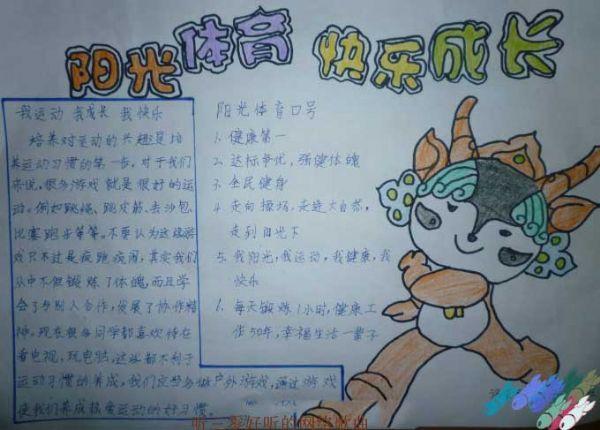 阳光体育 快乐成长
我运动 我成长 我快乐
培养对运动的兴趣是培
养运动习惯的第一步，对于我们
来说，很多游戏就是很好的运
动。例如跳绳、跳皮筋、丢沙包、
比赛跑步等等。不要认为这些游
戏只不过是疯跑疯闹，其实我们
从中不但锻炼了体魄，而且学
会了与别人合作，发展了协作精
神。现在很多同学都喜欢待在
看电视，玩电脑，这些都不利于
运动习惯的养成，我们应当多做户外游戏，通过游戏
使我们养成热爱运动的好习惯。
阳光体育口号
1. 健康第一
2. 达标争优，强健体魄
3. 全民健身
4. 走向操场，走进大自然，
走到阳光下
5. 我阳光，我运动，我健康，我
快乐
6. 每天锻炼1小时，健康工
作50年，幸福生活一辈子
听三妻好听的网络歌曲